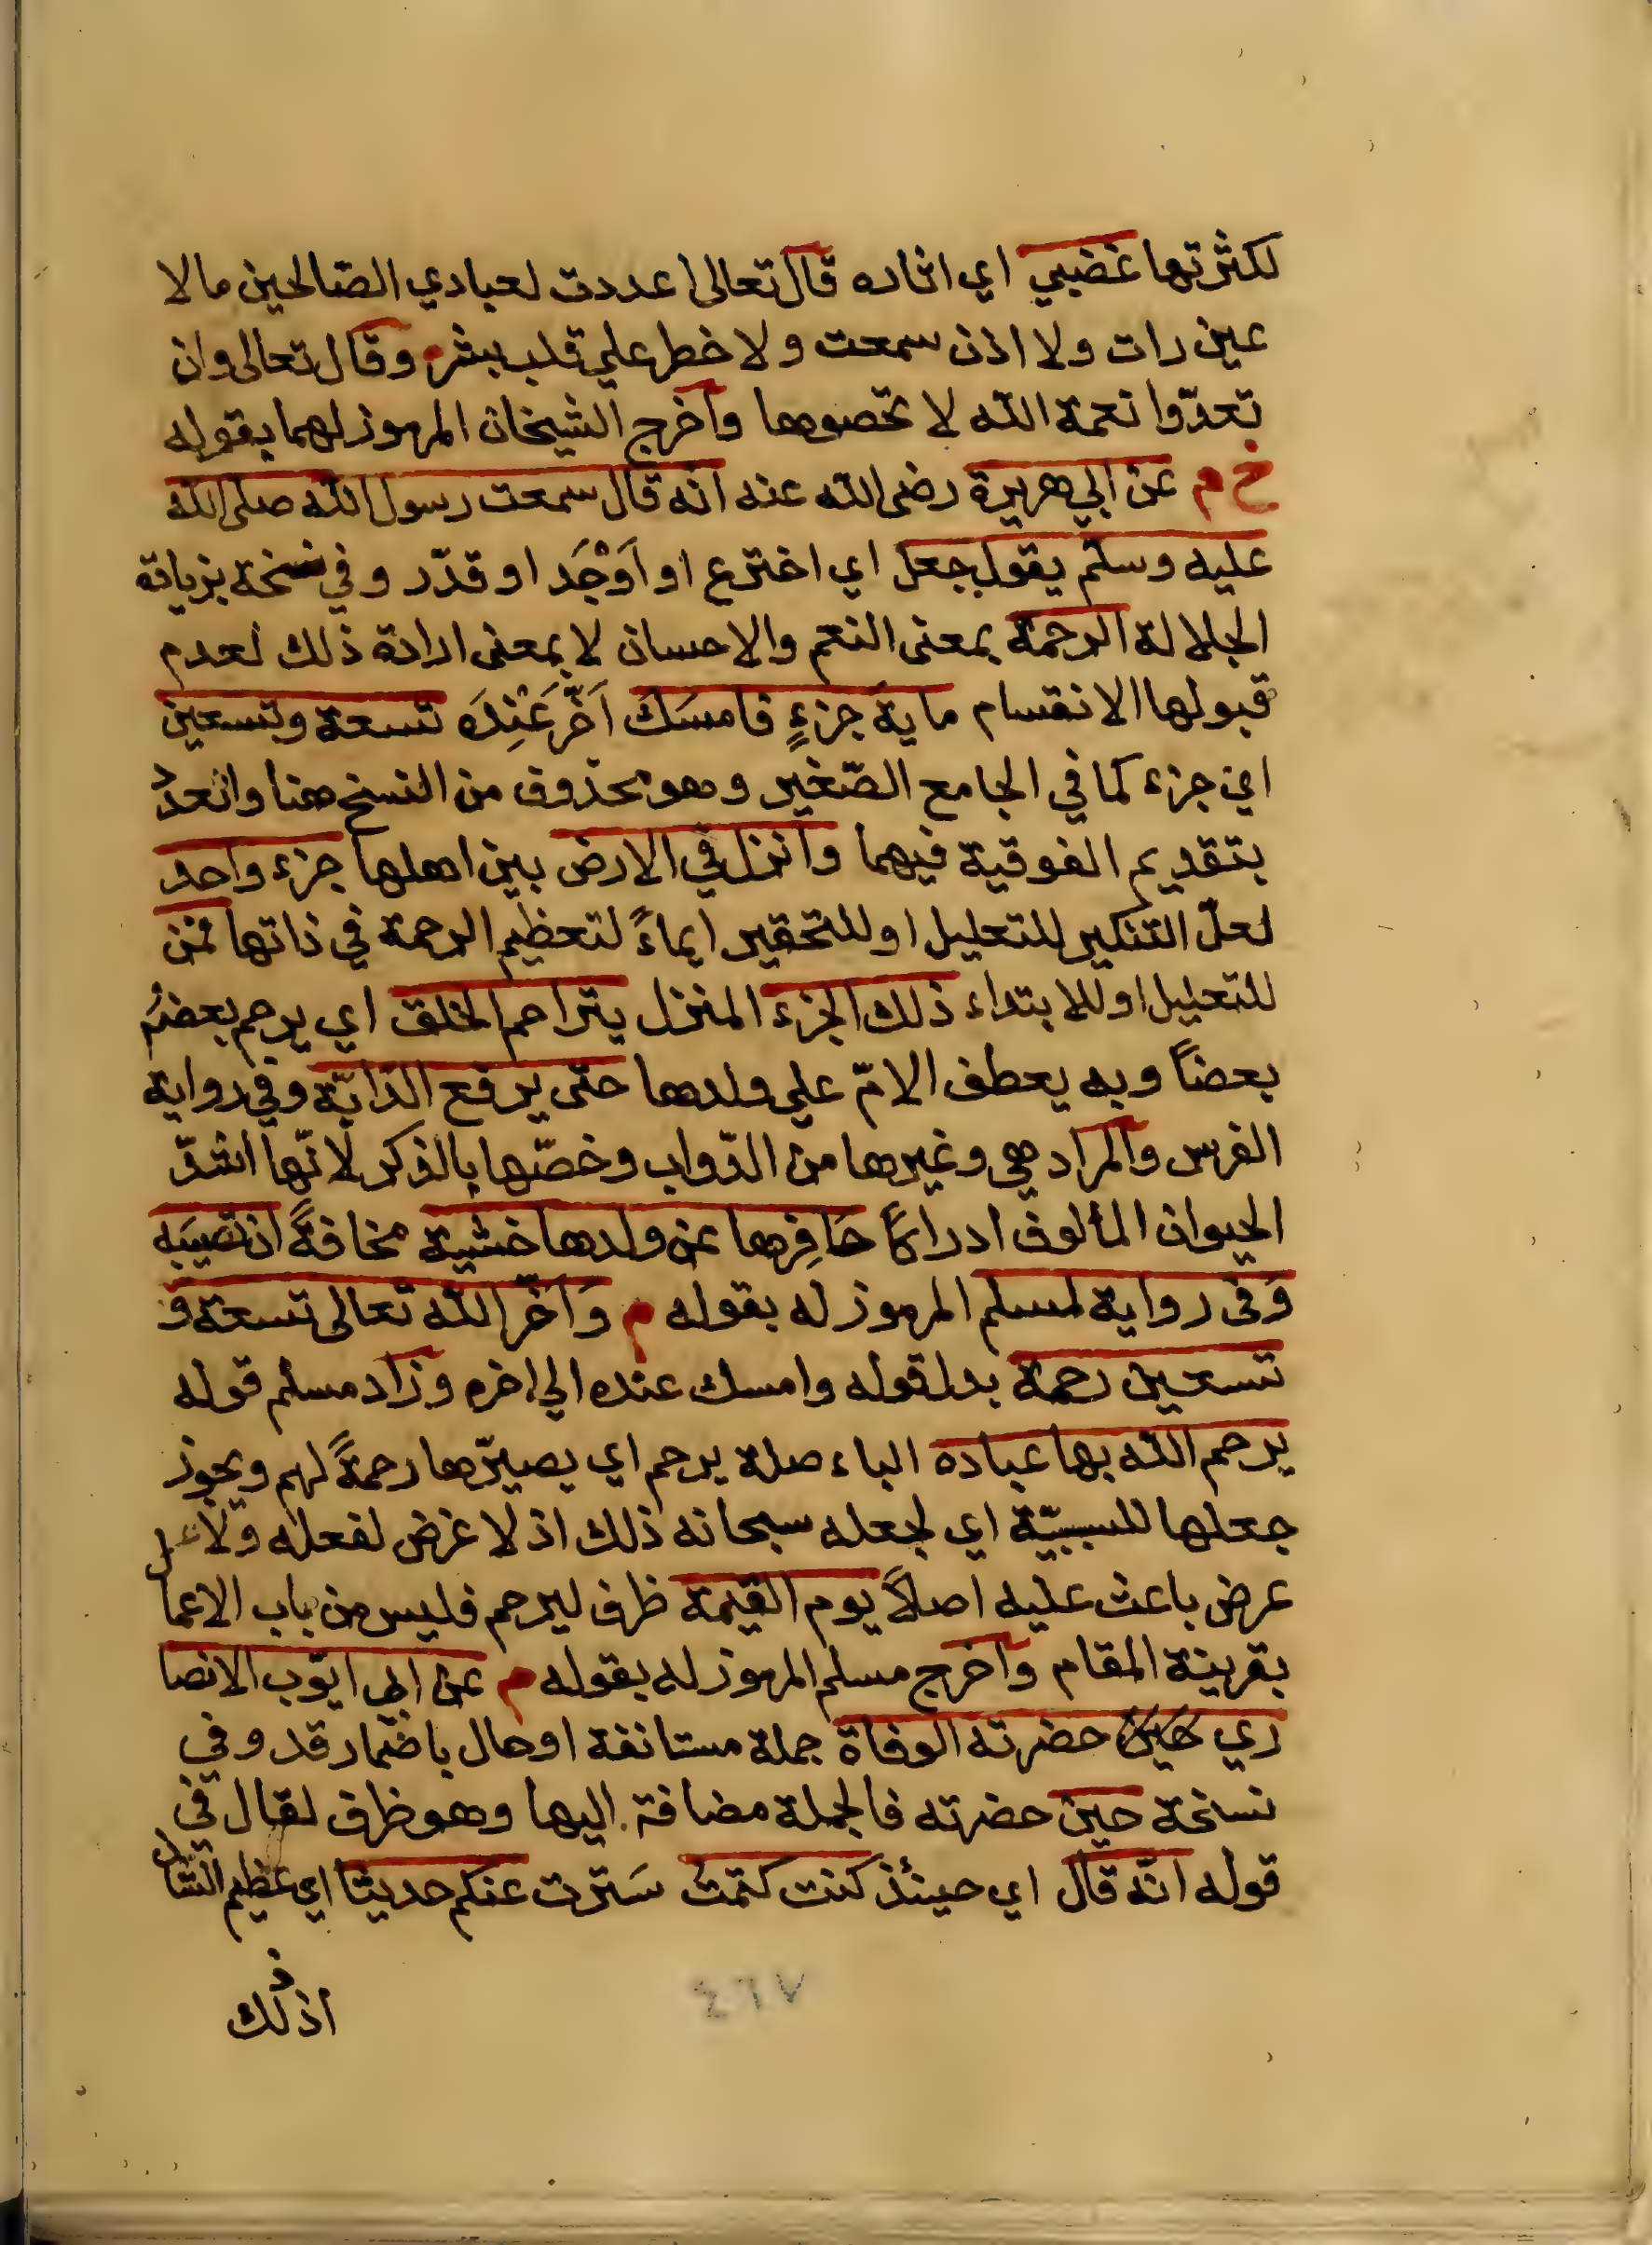 لكثرتها غضبي اي اثاره قال تعالى اعددت لعبادي الصّالحين مالا
عين رات ولا اذن سمعت ولا خطر علي قلب بشر وقال تعالى وان
تعدّوا نعمة الله لا تحصوها واخرج الشيخان المرموز لهما بقوله
خ م عن ابي هريرة رضى الله عنه انه قال سمعت رسول الله صلى الله
عليه وسلم يقول جعل اي اخترع او اَوْجَد او قدّر وفي نسخة بزيادة
الجلالة الرحمة بمعنى النعم والاحسان لا بمعنى ارادة ذلك لعدم
قبولها الانقسام ماية جزءٍ فامسَكَ اَخَّر عَنِدَه تسعة وتسعين
اي جزء كما في الجامع الصّغير وهو محذوف من النسخ هنا والعدد
بتقديم الفوقية فيهما وانزل في الارض بين اهلها جزء واحد
لعلّ التنكير للتعليل او للتحقير ايماءً لتعظيم الرحمة في ذاتها فمن
للتعليل او للابتداء ذلك الجزء المنزل يتراحم الخلق اي يرحم بعضهُم
بعضاً وبه يعطف الامّ علي ولدها حتّى يرفع الدابّة وفي رواية
الفرس والمراد هي وغيرها من الدّواب وخصّها بالذكر لانّها اشدّ
الحيوان المألوف ادراكاً حَافِرها عن ولدها خشية مخافةً ان تصيبَه
وَفى رواية لمسلم المرموز له بقوله م وَاَخّر الله تعالى تسعة و
تسعين رحمة بدل قوله وامسك عنده الي اخره وزاد مسلم قوله
يرحم الله بها عباده الباء صلة يرحم اي يصيّرها رحمةً لهم ويجوز
جعلها للسببيّة اي لجعله سبحانه ذلك اذ لا غرض لفعله ولا
عرض باعث عليه اصلاً يوم القيمة ظرف ليرحم فليس من باب الاعمال
بقرينة المقام واخرج مسلم المرموز له بقوله م عن ابي ايّوب الانصا
ري حين حضرته الوفاة جملة مستانفة او حال باضمار قد وفي
نسخة حين حضرته فالجملة مضافة اليها وهو ظرف لقال في
قوله انّه قال اي حينئذ كنت كتمتُ سَترت عنكم حديثا اي عظيم الشان
اذ ذلك
٤٦٧